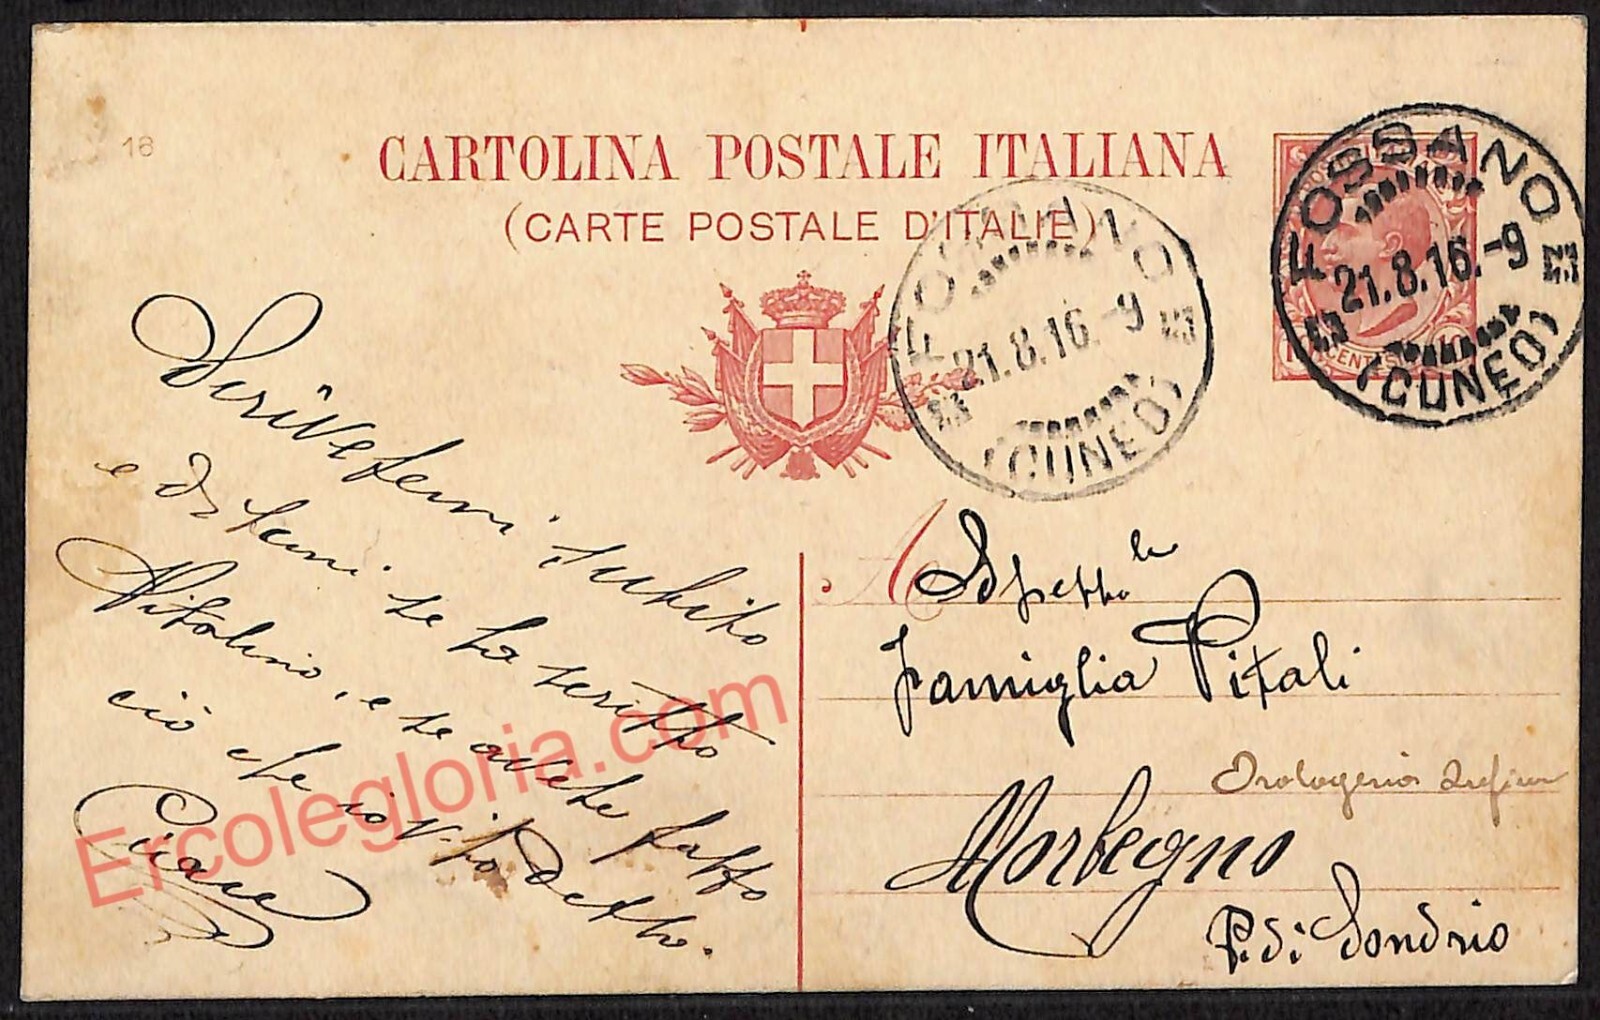 16
CARTOLINA POSTALE ITALIANA
(CARTE POSTALE D'ITALIE)
FOSSANO
21.8.16.-9
(CUNEO)
FOSSANO
21.8.16.-9
(CUNEO)
CENTES
Scrivetemi subito
e ditemi se ha scritto
Vitalino, e se avete fatto
ciò che io v'ho detto.
A
Spettble
Famiglia Vitali
Orologeria
Morbegno
P. di Sondrio
Ercolegloria.com